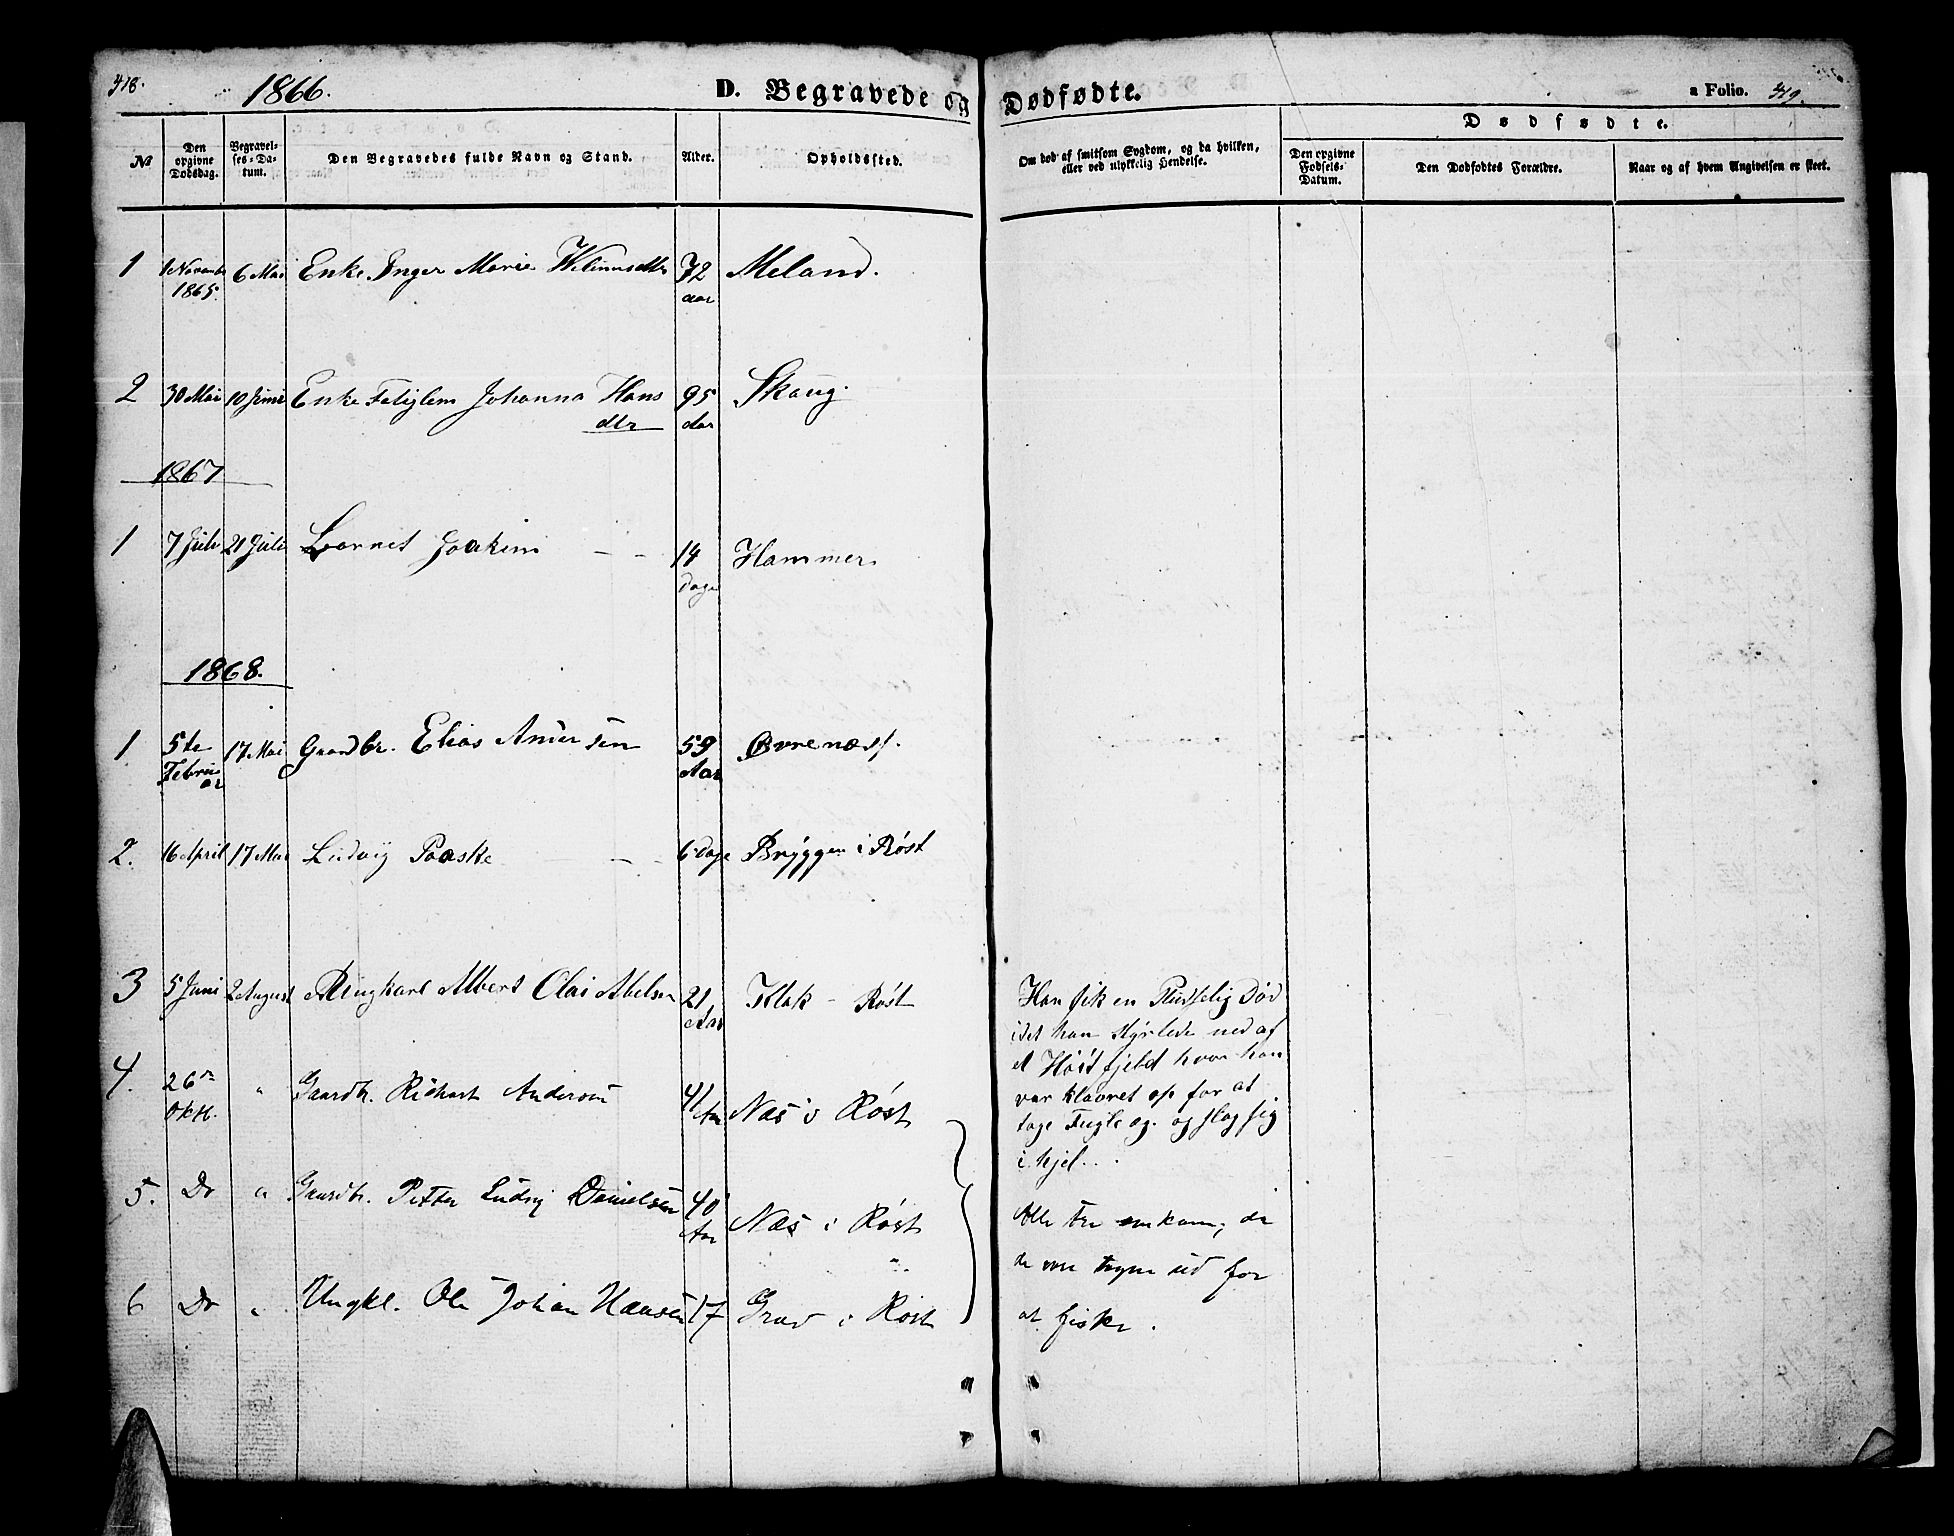 418.
1866.
D. Begravede og Dødfødte.
a Folio. 419.
№
Den opgivne Dødsdag.
Begravelses-Datum.
Den Begravedes fulde Navn og Stand.
Alder.
Opholdssted.
Om død af smitsom Sygdom, og da hvilken, eller ved ulykkelig Hendelse.
Dødfødte.
Den opgivne Fødsels-Datum.
Den Dødfødtes Forældre.
Naar og af hvem Angivelsen er skeet.
1 1 Novembr 1865. 6 Mai Enke Inger Marie 72 aar Meland.
2 30 Mai 10 Juni Enke Johanna Hansdtr 95 Aar Skaug.
1867
1 7 Juli 21 Juli Barnet Joakim 14 dage Hammer
1868.
1 5te Februar 17 Mai Gaardbr. Elias Andersen 59 Aar Øvrenæss.
2. 16 April 17 Mai Ludvig Paaske 6 Dage Bryggen i Røst
3 5 Juni 2 August Albert Olai Abelsen 21 Aar Klak - Røst
Han fik en Pludselig Død
idet han styrtede ned af
et Høit fjeld hvor han
var klavret op for at
tage Fugle og. og slog sig
ihjel...
4. 26de Okt. " Gaardbr. Richart Andersen 41 Aar Næs i Røst
5. Do " Gaardbr. Petter Ludvig Danielsen 40 Aar Næs i Røst
6 Do " Ungkl. Ole Johan Hansen 17 Grav i Røst
Alle tre omkom, da
de var tagne ud for
at fiske.